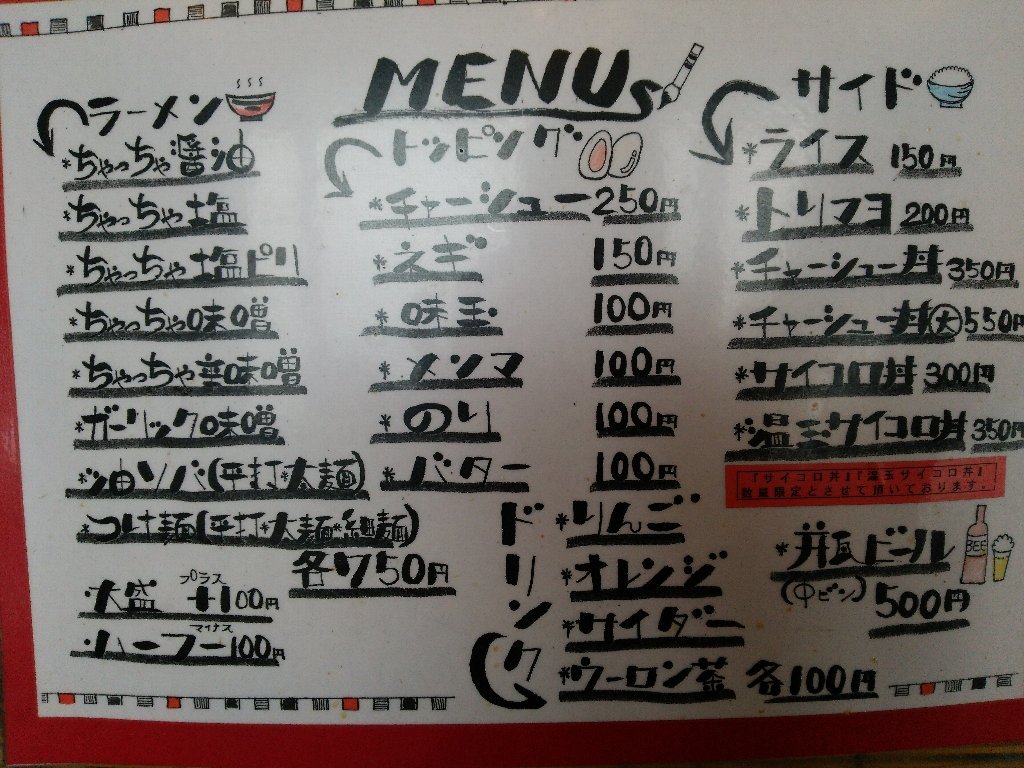 MENUs
ラーメン
*ちゃっちゃ醤油
*ちゃっちゃ塩
*ちゃっちゃ塩ピリ
*ちゃっちゃ味噌
*ちゃっちゃ辛味噌
*ガーリック味噌
*油ソバ(平打*太麺)
*つけ麺(平打*太麺*細麺)
各750円
大盛 プラス+100円
ハーフ マイナス-100円
トッピング
*チャーシュー 250円
*ネギ 150円
*味玉 100円
*メンマ 100円
*のり 100円
*バター 100円
ドリンク
*りんご
*オレンジ
*サイダー
*ウーロン茶 各100円
サイド
*ライス 150円
*トリマヨ 200円
*チャーシュー丼 350円
*チャーシュー丼(大) 550円
*サイコロ丼 300円
*温玉サイコロ丼 350円
『サイコロ丼』『温玉サイコロ丼』
数量限定とさせて頂いております。
*瓶ビール
(中ビン) 500円
BEE